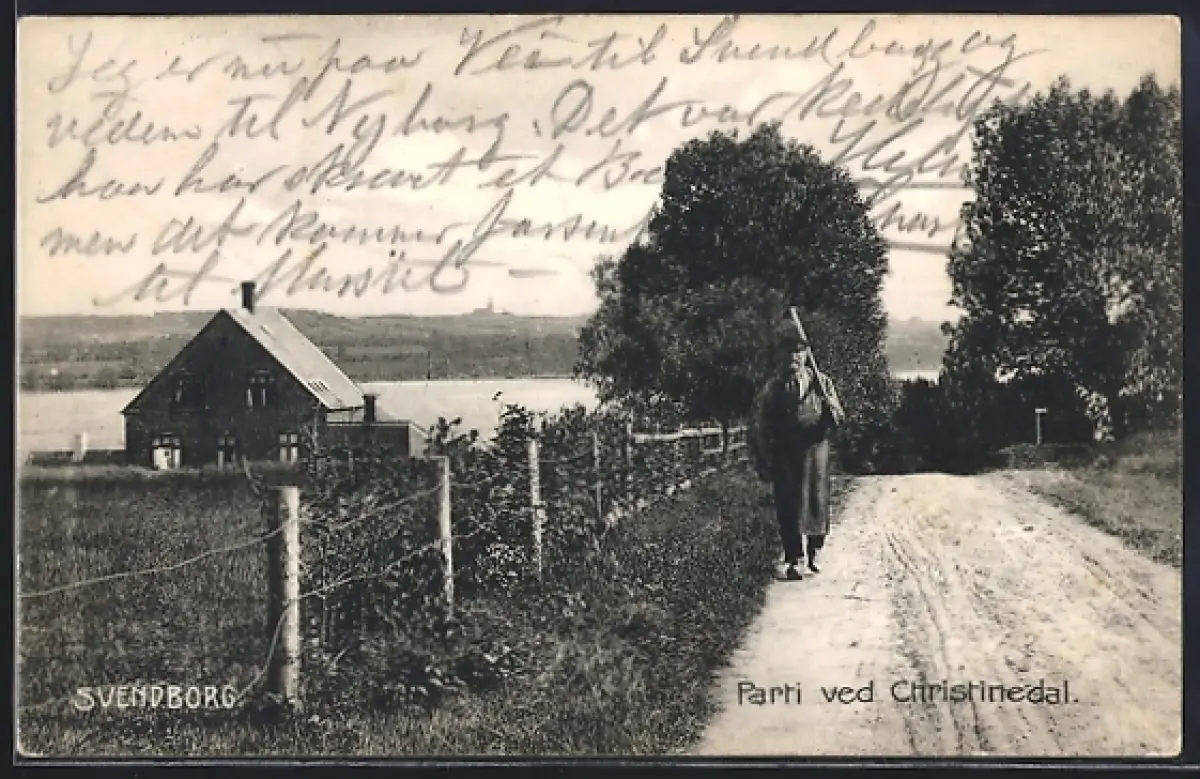 Jeg er nu paa Vei til Svendborg og
vidern til Nyborg. Det var kedeligt
han har skrevet et
men det kommer
til
SVENDBORG
Parti ved Christinedal.